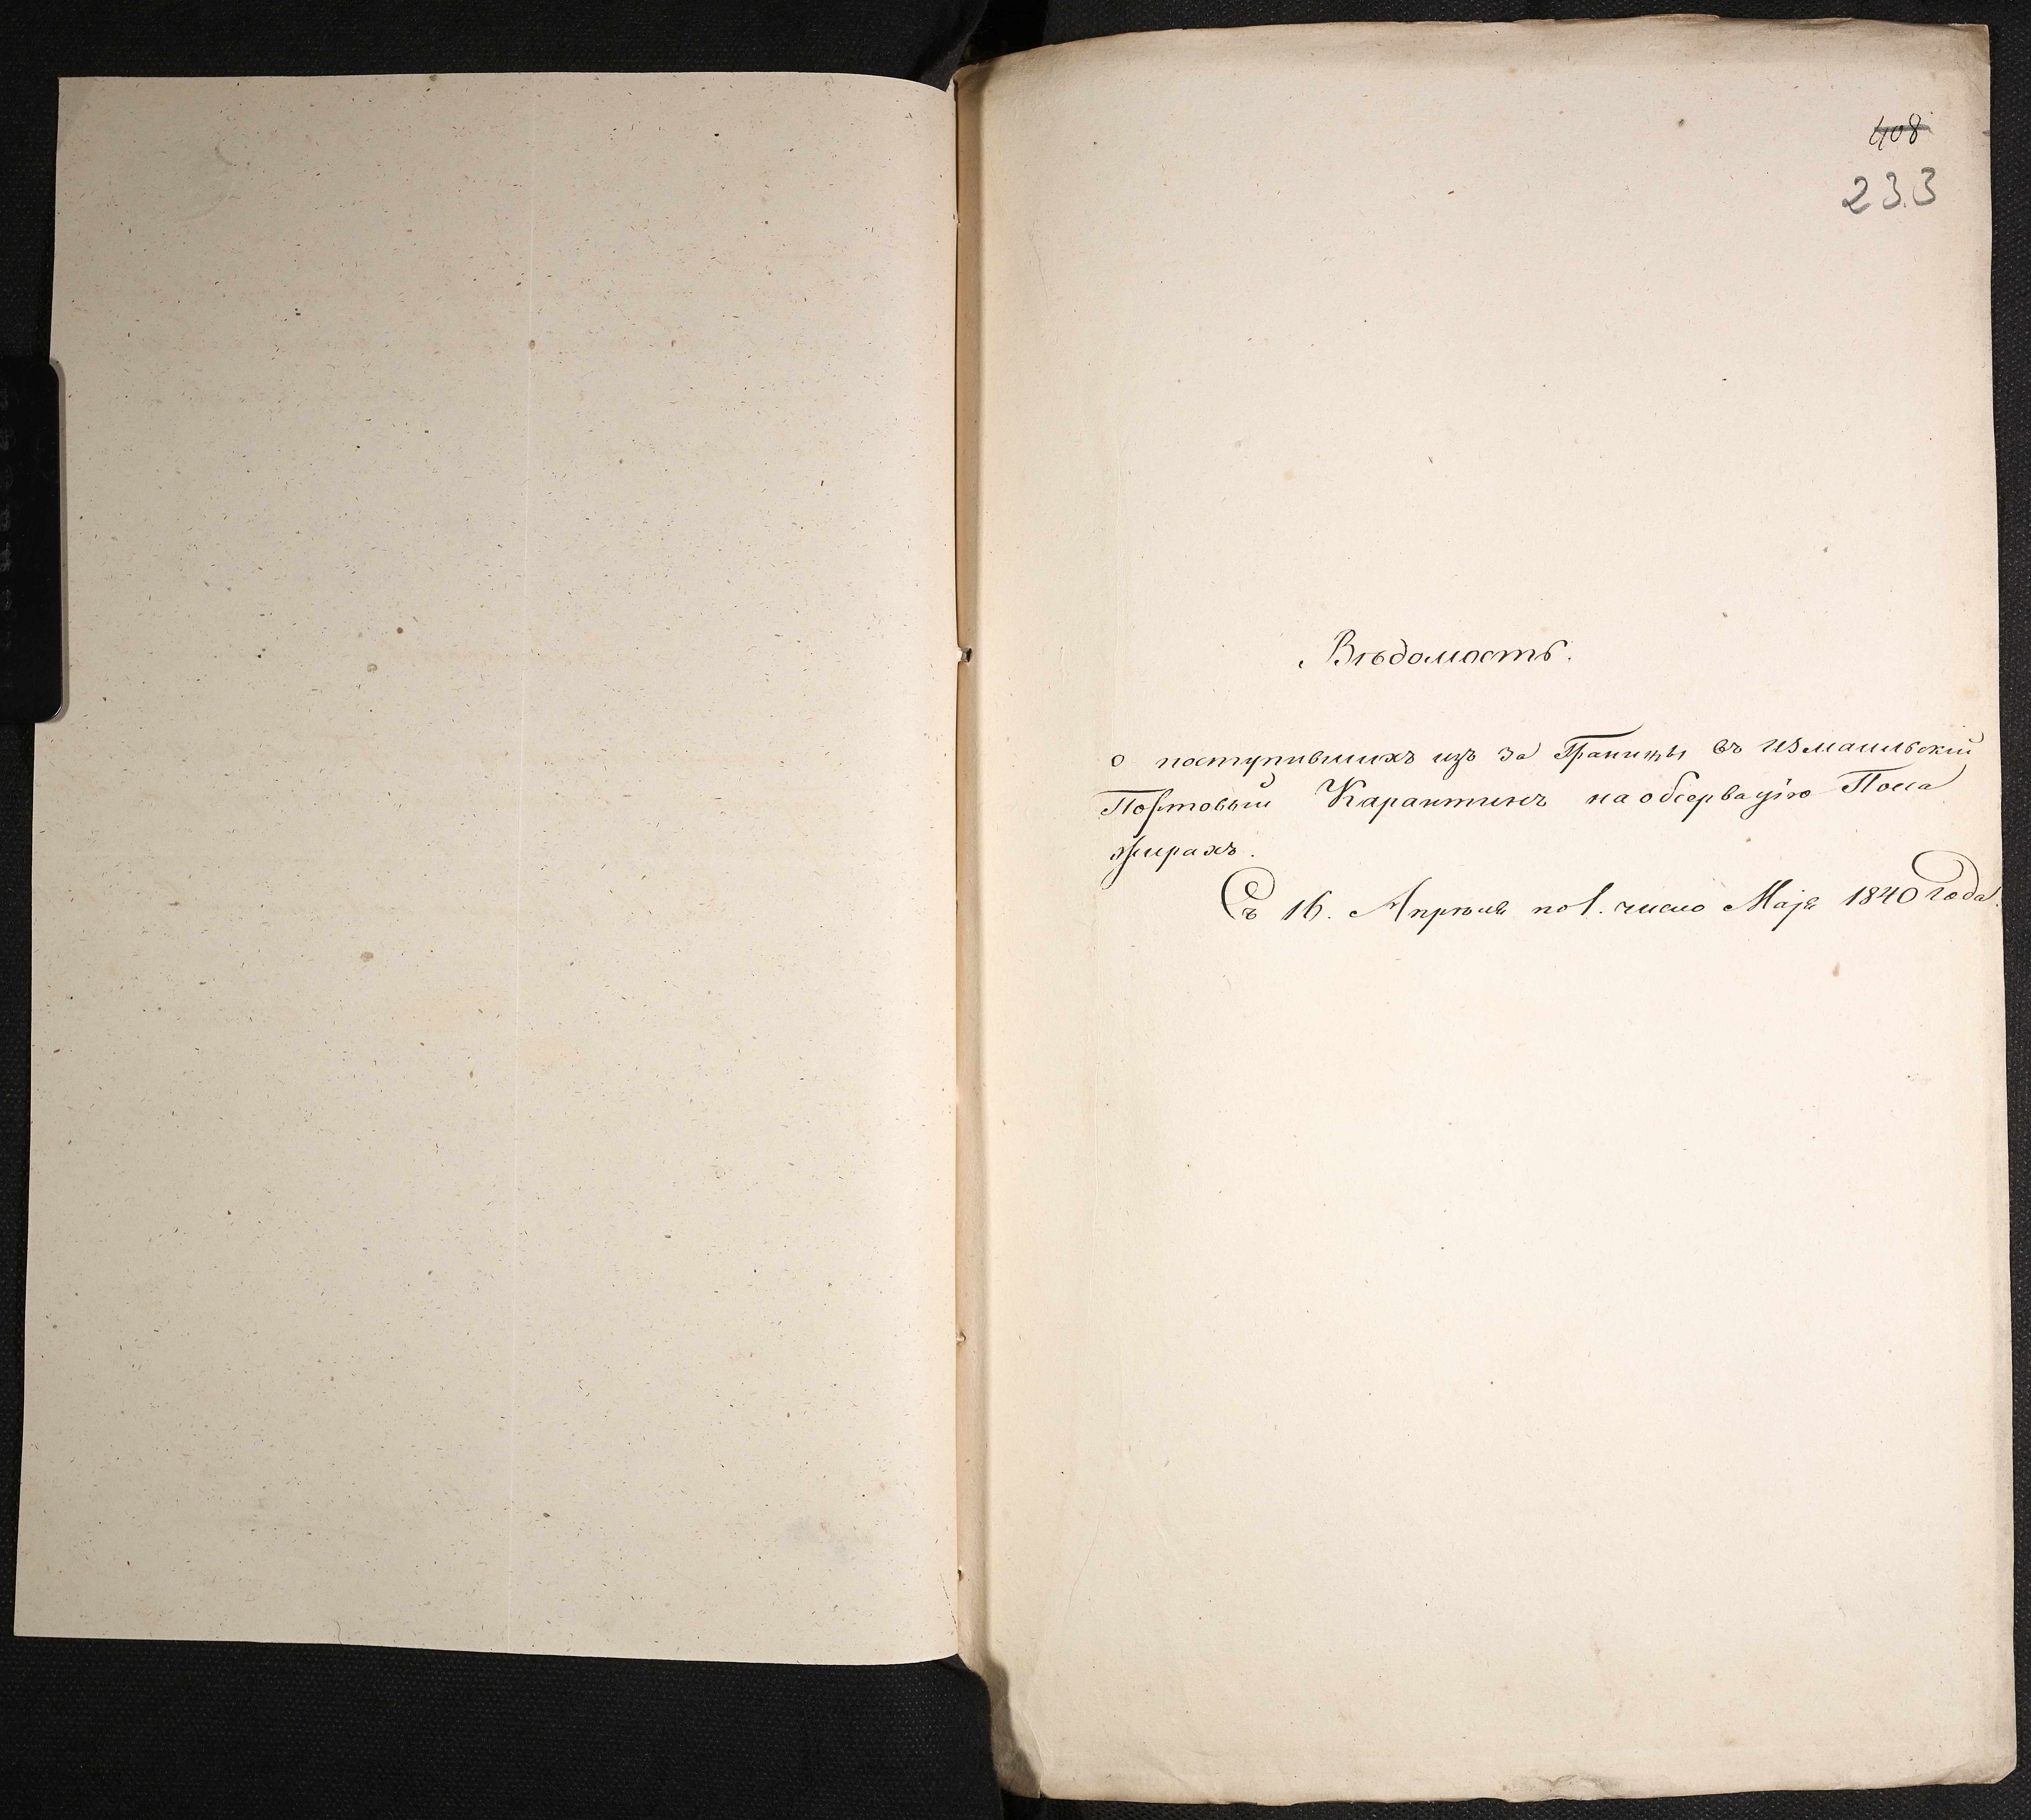 408
233
Вѣдомость.
о поступившихъ изъ за Границы въ Измаильскій
Портовый Карантинъ на обсервацію Пола
жирахъ.
Съ 16. Апрѣля по 1. число Маја 1840 года.